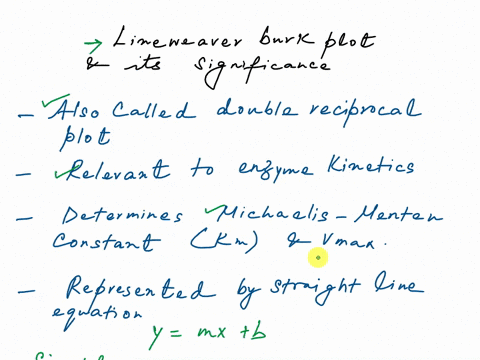 → Lineweaver burk plot
& its significance
- Also Called double reciprocal
plot
- Relevant to enzyme Kinetics
- Determines Michaelis-Menten
Constant (Km) & Vmax.
- Represented by straight line
equation
y = mx + b